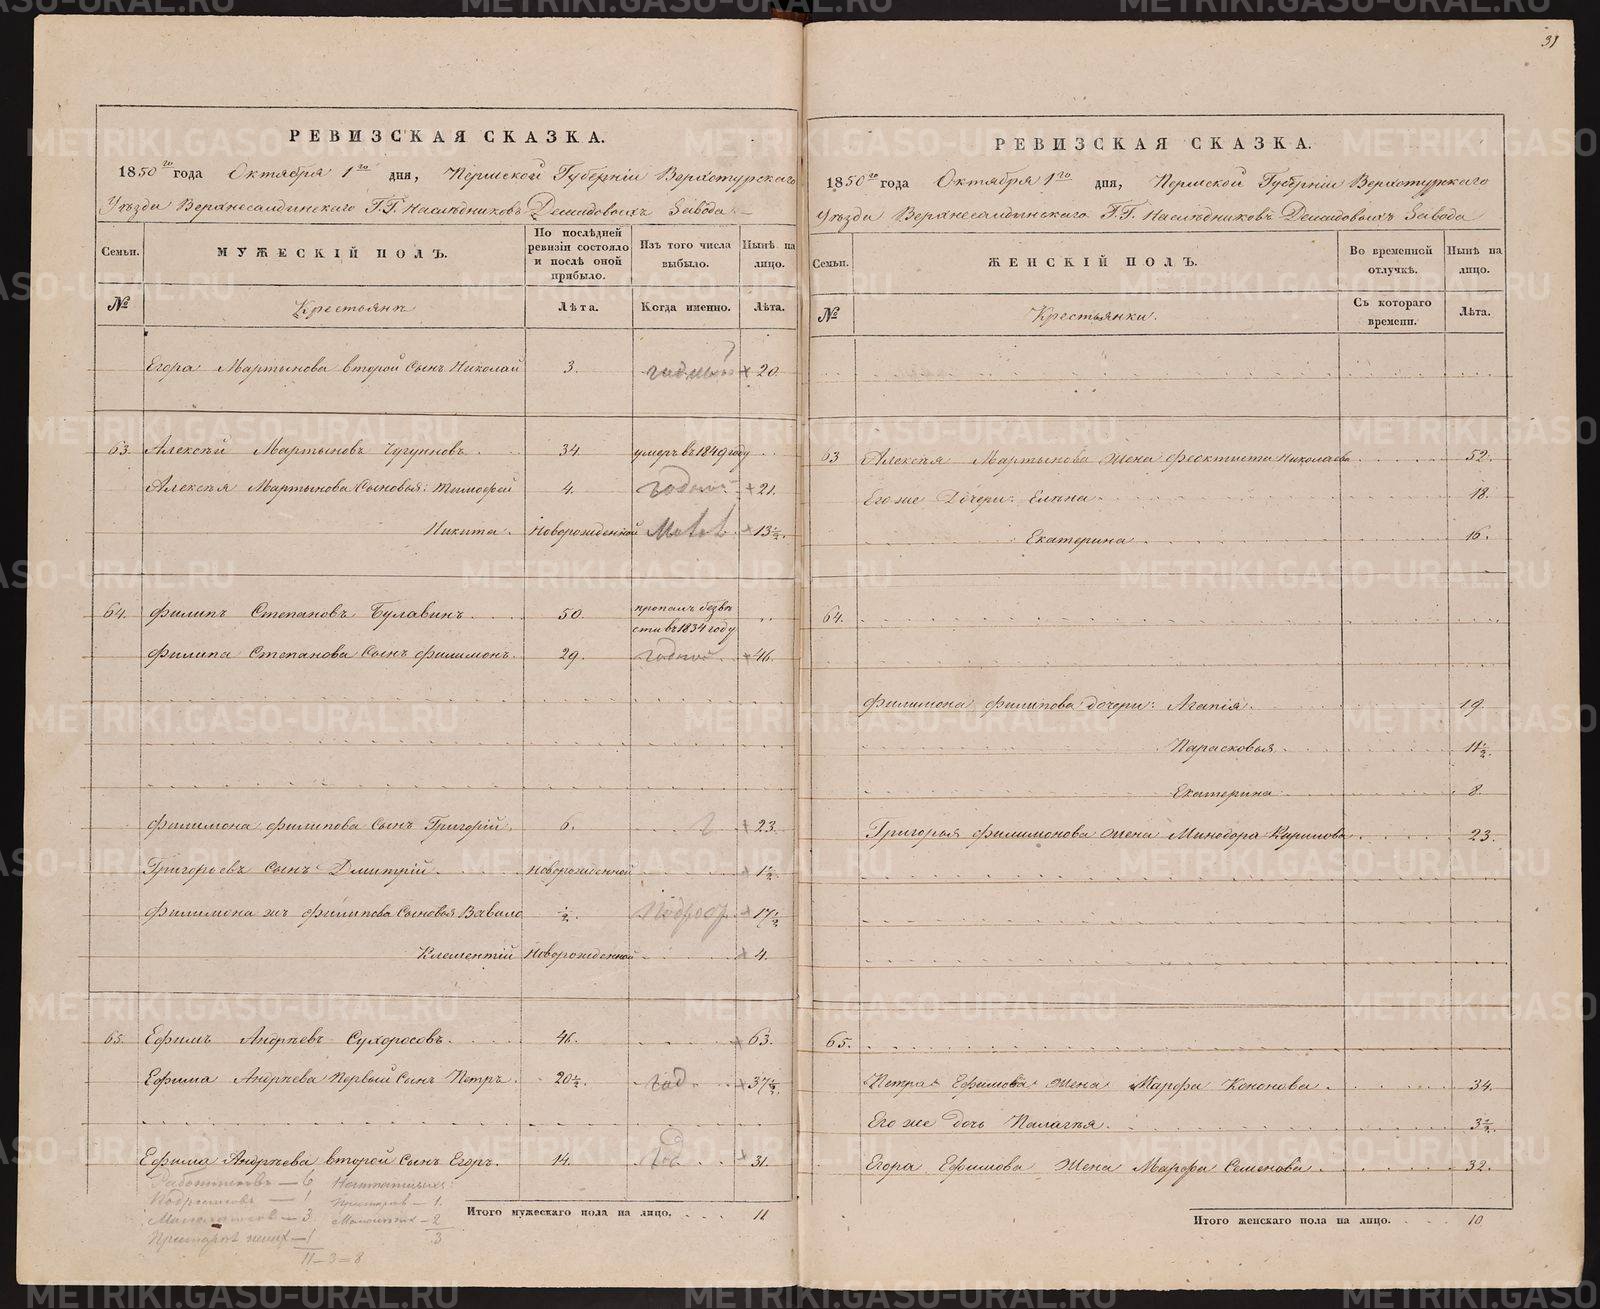 31
РЕВИЗСКАЯ СКАЗКА.
1850го года Октября 1го дня, Пермской Губерніи Верхотурскаго
Уѣзда Верхнесалдинскаго Г.Г. Наслѣдниковъ Демидовыхъ Завода
Семьи.
МУЖЕСКІЙ ПОЛЪ.
По послѣдней ревизіи состояло и послѣ оной прибыло.
Изъ того числа выбыло.
Нынѣ на лицо.
№
Крестьянъ
Лѣта.
Когда именно.
Лѣта.
Егора Мартынова второй сынъ Николай 3. годный 20
63. Алексѣй Мартыновъ Чугуновъ 34 умеръ въ 1849 году
Алексѣя Мартынова сыновья: Тимофей 4. годной 21.
Никита. Новорожденной 13½.
64. Филипъ Степановъ Булавинъ 50. пропалъ безвѣ
сти въ 1834 году
Филипа Степанова сынъ Филимонъ. 29. годной 46.
Филимона Филипова сынъ Григорій. 6. 23.
Григорьевъ сынъ Дмитрій. новорожденной 1½.
Филимона жъ Филипова сыновья Вавило ½. Подрос 17½
Клементій Новорожденной 4.
65. Ефимъ Андрѣевъ Сухоросовъ 46. 63.
Ефима Андрѣева первый сынъ Петръ. 20½. год 37½.
Ефима Андрѣева второй сынъ Егоръ. 14. год 31.
Работниковъ — 6
Подростковъ — 1
3
1
11 — 3 = 8
1.
2
3
Итого мужескаго пола на лицо. 11
РЕВИЗСКАЯ СКАЗКА.
1850го года Октября 1го дня, Пермской Губерніи Верхотурскаго
Уѣзда Верхнесалдинскаго Г.Г. Наслѣдниковъ Демидовыхъ Завода
Семьи.
ЖЕНСКІЙ ПОЛЪ.
Во временной отлучкѣ.
Нынѣ на лицо.
№
Крестьянки.
Съ котораго времени.
Лѣта.
63 Алексѣя Мартынова жена Феоктиста Николаева 52.
Его же Дочери: Елена 18.
Екатерина 16.
64.
Филимона Филипова дочери: Агапія 19.
Парасковья 11½.
Екатерина 8.
Григорья Филимонова жена Минодора Кирилова 23.
65.
Петра Ефимова жена Марфа Кононова. 34.
Его же дочь Палагѣя. 3½.
Егора Ефимова жена Марфа Семенова. 32.
Итого женскаго пола на лицо. 10.
METRIKI.GASO-URAL.RU